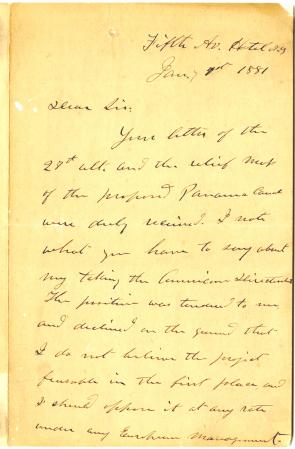 Fifth Av. Hotel N.Y.
Jan'y 1881
Dear Sir:
Your letter of the
27th ult. and the relief map
of the proposed Panama Canal
were duly received. I note
what you have to say about
my taking the American Directors
The position was tendered to me
and declined on the ground that
I do not believe the project
feasable in the first place and
I should oppose it at any rate
under any European management.